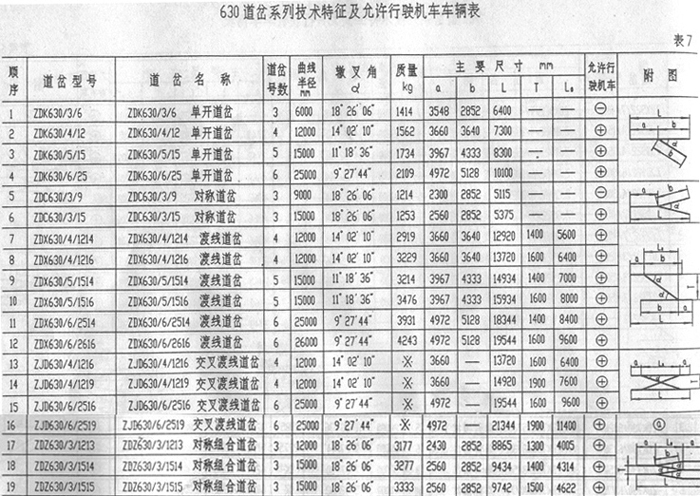 630道岔系列技术特征及允许行驶机车车辆表
表7
顺序 道岔型号 道岔名称 道岔号数 曲线半径mm 辙叉角α 质量kg 主要尺寸 mm a b L T L₀ 允许行驶机车 附图
1 ZDK630/3/6 ZDK630/3/6 单开道岔 3 6000 18°26′06″ 1414 3548 2852 6400 — — ⊖
2 ZDK630/4/12 ZDK630/4/12 单开道岔 4 12000 14°02′10″ 1562 3660 3640 7300 — — ⊕
3 ZDK630/5/15 ZDK630/5/15 单开道岔 5 15000 11°18′36″ 1734 3967 4333 8300 — — ⊕
4 ZDK630/6/25 ZDK630/6/25 单开道岔 6 25000 9°27′44″ 2109 4972 5128 10100 — — ⊕
5 ZDC630/3/9 ZDC630/3/9 对称道岔 3 9000 18°26′06″ 1214 2300 2852 5115 — — ⊖
6 ZDC630/3/15 ZDC630/3/15 对称道岔 3 15000 18°26′06″ 1253 2560 2852 5375 — — ⊕
7 ZDX630/4/1214 ZDX630/4/1214 渡线道岔 4 12000 14°02′10″ 2919 3660 3640 12920 1400 5600 ⊕
8 ZDX630/4/1216 ZDX630/4/1216 渡线道岔 4 12000 14°02′10″ 3229 3660 3640 13720 1600 6400 ⊕
9 ZDX630/5/1514 ZDX630/5/1514 渡线道岔 5 15000 11°18′36″ 3214 3967 4333 14934 1400 7000 ⊕
10 ZDX630/5/1516 ZDX630/5/1516 渡线道岔 5 15000 11°18′36″ 3476 3967 4333 15934 1600 8000 ⊕
11 ZDX630/6/2514 ZDX630/6/2514 渡线道岔 6 25000 9°27′44″ 3931 4972 5128 18344 1400 8400 ⊕
12 ZDX630/6/2616 ZDX630/6/2616 渡线道岔 6 26000 9°27′44″ 4243 4972 5128 19544 1600 9600 ⊕
13 ZJD630/4/1216 ZJD630/4/1216 交叉渡线道岔 4 12000 14°02′10″ ※ 3660 — 13720 1600 6400 ⊕
14 ZJD630/4/1219 ZJD630/4/1219 交叉渡线道岔 4 12000 14°02′10″ ※ 3660 — 14920 1900 7600 ⊕
15 ZJD630/6/2516 ZJD630/6/2516 交叉渡线道岔 6 25000 9°27′44″ ※ 4972 — 19544 1600 9600 ⊕
16 ZJD630/6/2519 ZJD630/6/2519 交叉渡线道岔 6 25000 9°27′44″ ※ 4972 — 21344 1900 11400 ⊕
17 ZDZ630/3/1213 ZDZ630/3/1213 对称组合道岔 3 12000 18°26′06″ 3177 2430 2852 8865 1300 4005 ⊕
18 ZDZ630/3/1514 ZDZ630/3/1514 对称组合道岔 3 15000 18°26′06″ 3277 2560 2852 9434 1400 4314 ⊕
19 ZDZ630/3/1515 ZDZ630/3/1515 对称组合道岔 3 15000 18°26′06″ 3333 2560 2852 9742 1500 4622 ⊕